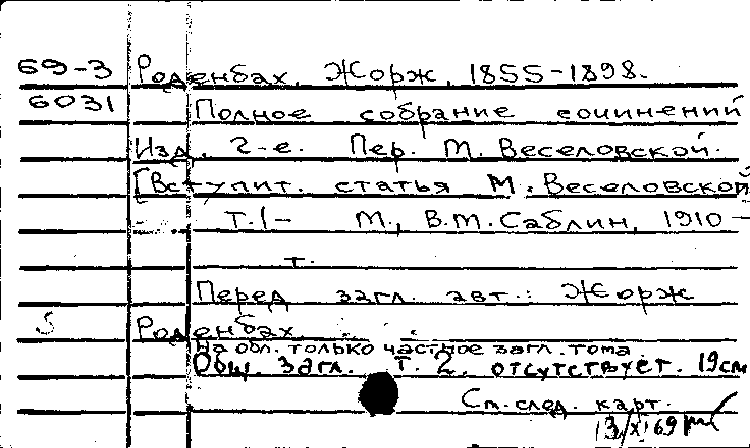 69-3 Роденбах, Жорж, 1855-1898.
6031 Полное собрание сочинений
Изд. 2-е. Пер. М. Веселовской.
[Вступит. статья М. Веселовской
Т.1- М., В.М. Саблин, 1910-
т.
Перед загл. авт.: Жорж
Роденбах.
На обл. только частное загл. тома
Общ. загл. т. 2. отсутствует. 19см
См. след. карт.
13/XI 69